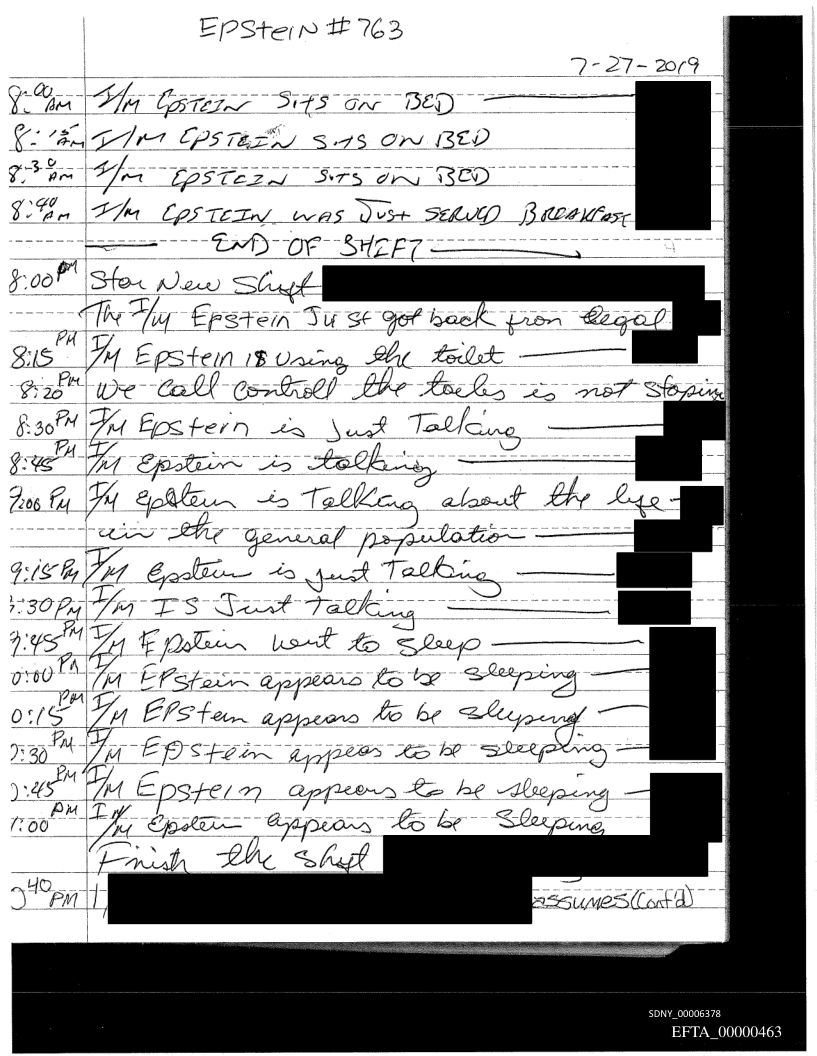 EPSTEIN # 763
7-27-2019
8:00 AM I/M EPSTEIN SITS ON BED
8:15 AM I/M EPSTEIN SITS ON BED
8:30 AM I/M EPSTEIN SITS ON BED
8:40 AM I/M EPSTEIN WAS JUST SERVED BREAKFAST
END OF SHIFT
8:00 PM Star New Shift
The I/M Epstein Just got back from legal
8:15 PM I/M Epstein is using the toilet
8:20 PM We call controll the is not stoping
8:30 PM I/M Epstein is Just Talking
8:45 PM I/M Epstein is talking
9:00 PM I/M Epstein is Talking about the life
in the general population
9:15 PM I/M Epstein is just Talking
:30 PM I/M IS Just talking
9:45 PM I/M Epstein went to sleep
0:00 PM I/M EPStein appears to be sleeping
0:15 PM I/M EPStein appears to be sleeping
0:30 PM I/M EPStein appears to be sleeping
0:45 PM I/M Epstein appears to be sleeping
1:00 PM I/M Epstein appears to be Sleeping
Finish the shift
40 PM I, assumes (Cont'd)
SDNY_00006378
EFTA_00000463